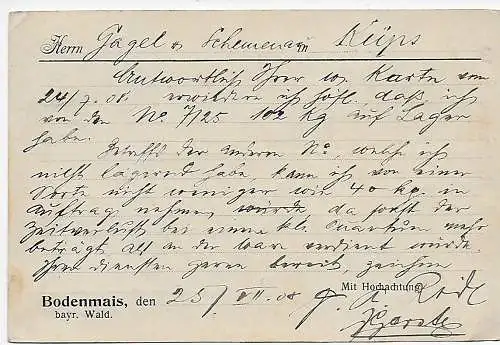 Herrn Gagel & Schemenau in Küps
Antwortlich Ihrer w. Karte vom
24/7.08. erwidere ich höfl. daß ich
von der No. 7/125 102 kg auf Lager
habe.
Betreffs der anderen No, welche ich
nicht lagernd habe, kann ich von einer
Sorte nicht weniger wie 40 kg. in
Auftrag nehmen, würde, da sonst der
Zeitverlust bei einem kl. Quantum mehr
beträgt als an der Ware verdient würde
Ihren Diensten gerne bereit, zeichne
Mit Hochachtung
Bodenmais, den 25/VII.08
bayr. Wald.